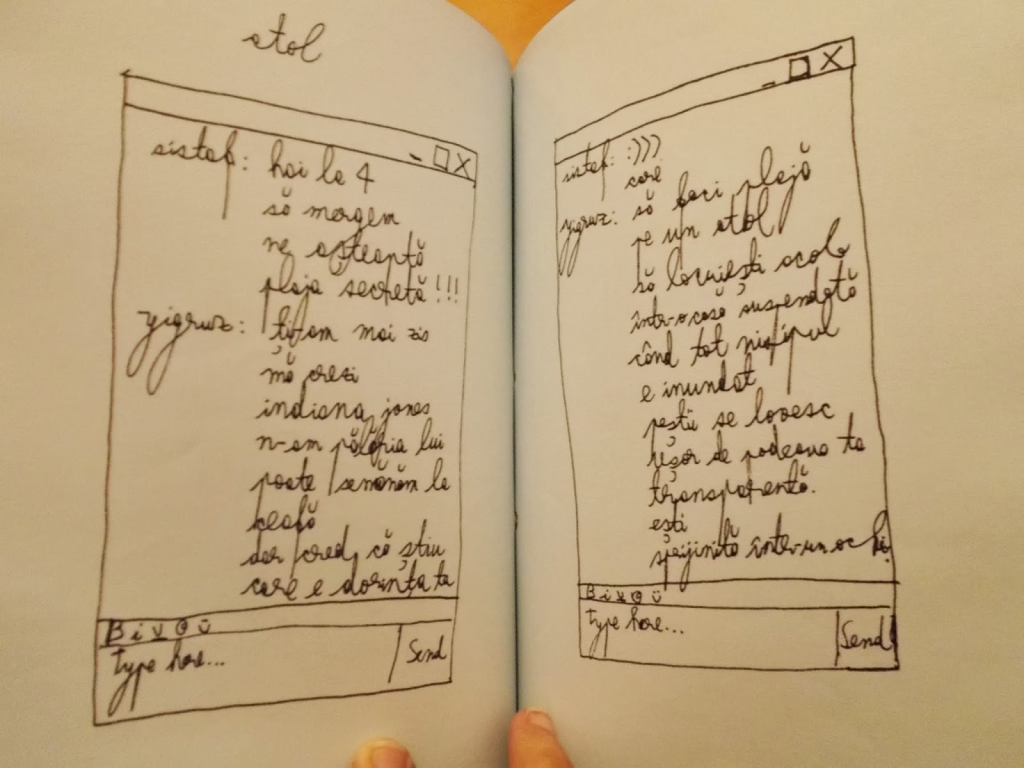 atol
sistaf: hai la 4
să mergem
ne așteaptă
plaja secretă!!!
yigruz: ți-am mai zis
mă crezi
indiana jones
n-am pălăria lui
poate semănăm la
ceafă
dar cred că știu
care e dorința ta
B i U ☺ ü
type here...
Send
sistaf: :)))
care
yigruz: să faci plajă
pe un atol
să locuiești acolo
într-o casă suspendată
când tot nisipul
e inundat
peștii se lovesc
ușor de podeaua ta
transparentă.
ești
sprijinită într-un ochi.
B i U ☺ ü
type here...
Send